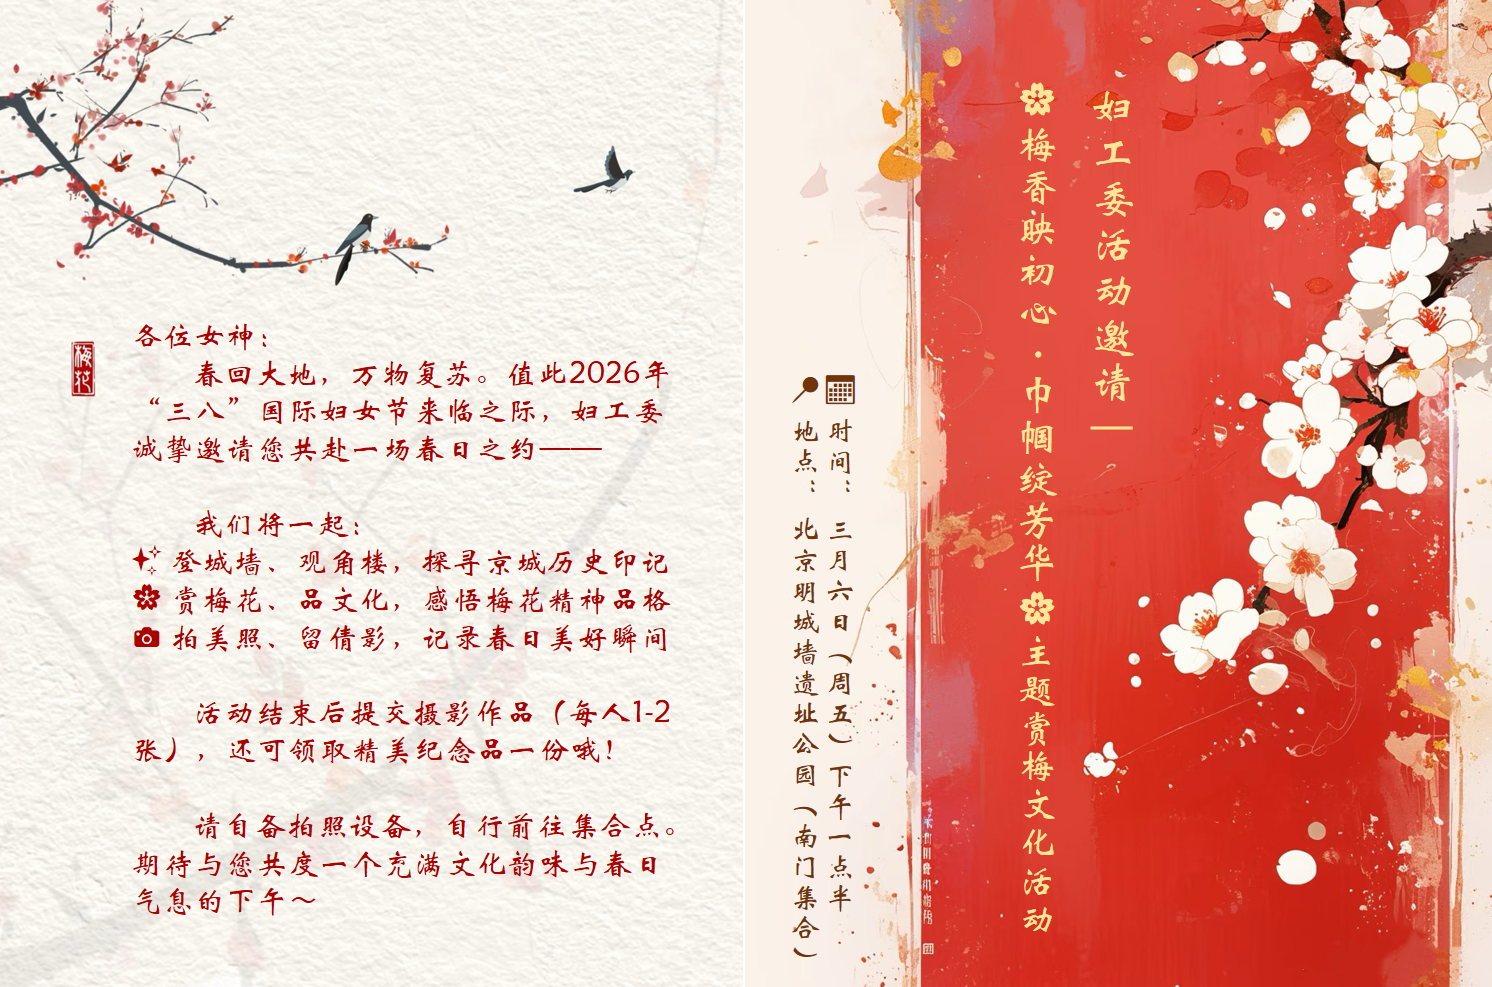 各位女神：
春回大地，万物复苏。值此2026年
“三八”国际妇女节来临之际，妇工委
诚挚邀请您共赴一场春日之约——
我们将一起：
登城墙、观角楼，探寻京城历史印记
赏梅花、品文化，感悟梅花精神品格
拍美照、留倩影，记录春日美好瞬间
活动结束后提交摄影作品（每人1-2
张），还可领取精美纪念品一份哦！
请自备拍照设备，自行前往集合点。
期待与您共度一个充满文化韵味与春日
气息的下午～
梅花
妇工委活动邀请—
梅香映初心·巾帼绽芳华 主题赏梅文化活动
时间：三月六日（周五）下午一点半
地点：北京明城墙遗址公园（南门集合）